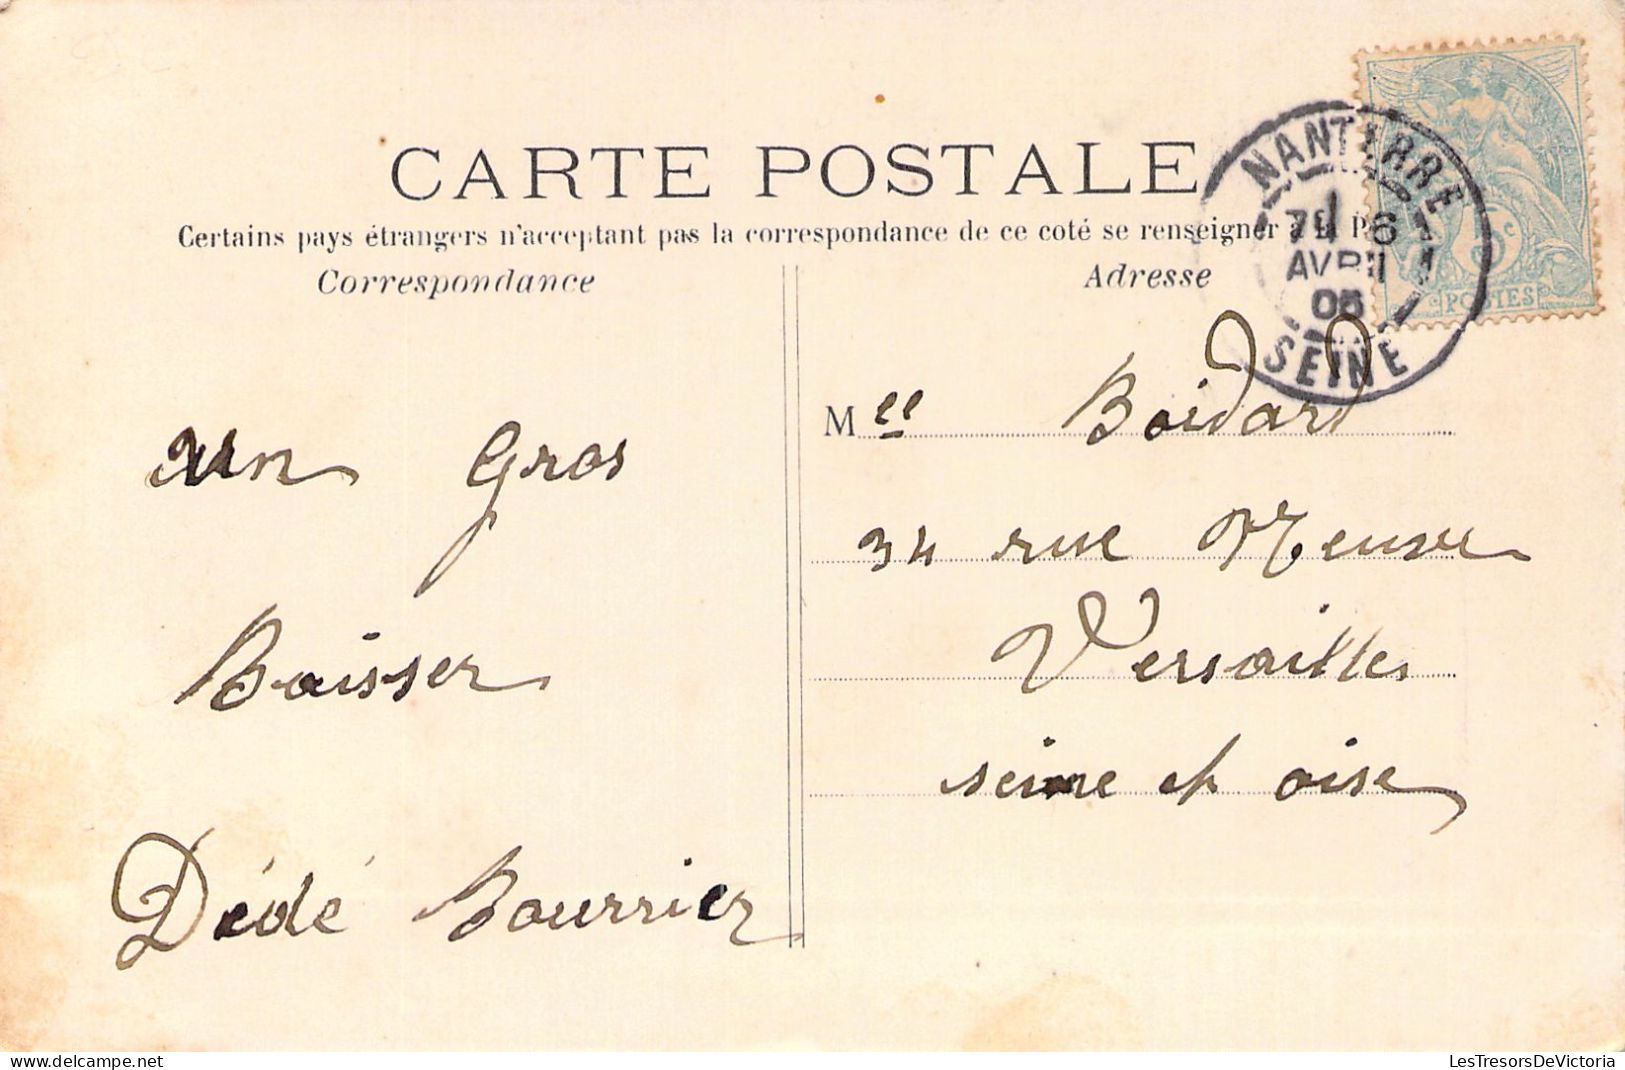 CARTE POSTALE
Certains pays étrangers n'acceptant pas la correspondance de ce coté se renseigner à la P
Correspondance
Adresse
NANTERRE
6
AVRIL
05
SEINE
5c
POSTES
un Gros
Baisser
Dédé Bourrier
Mlle Boidard
34 rue Neuve
Versailles
seine et oise
delcampe.net
LesTresorsDeVictoria